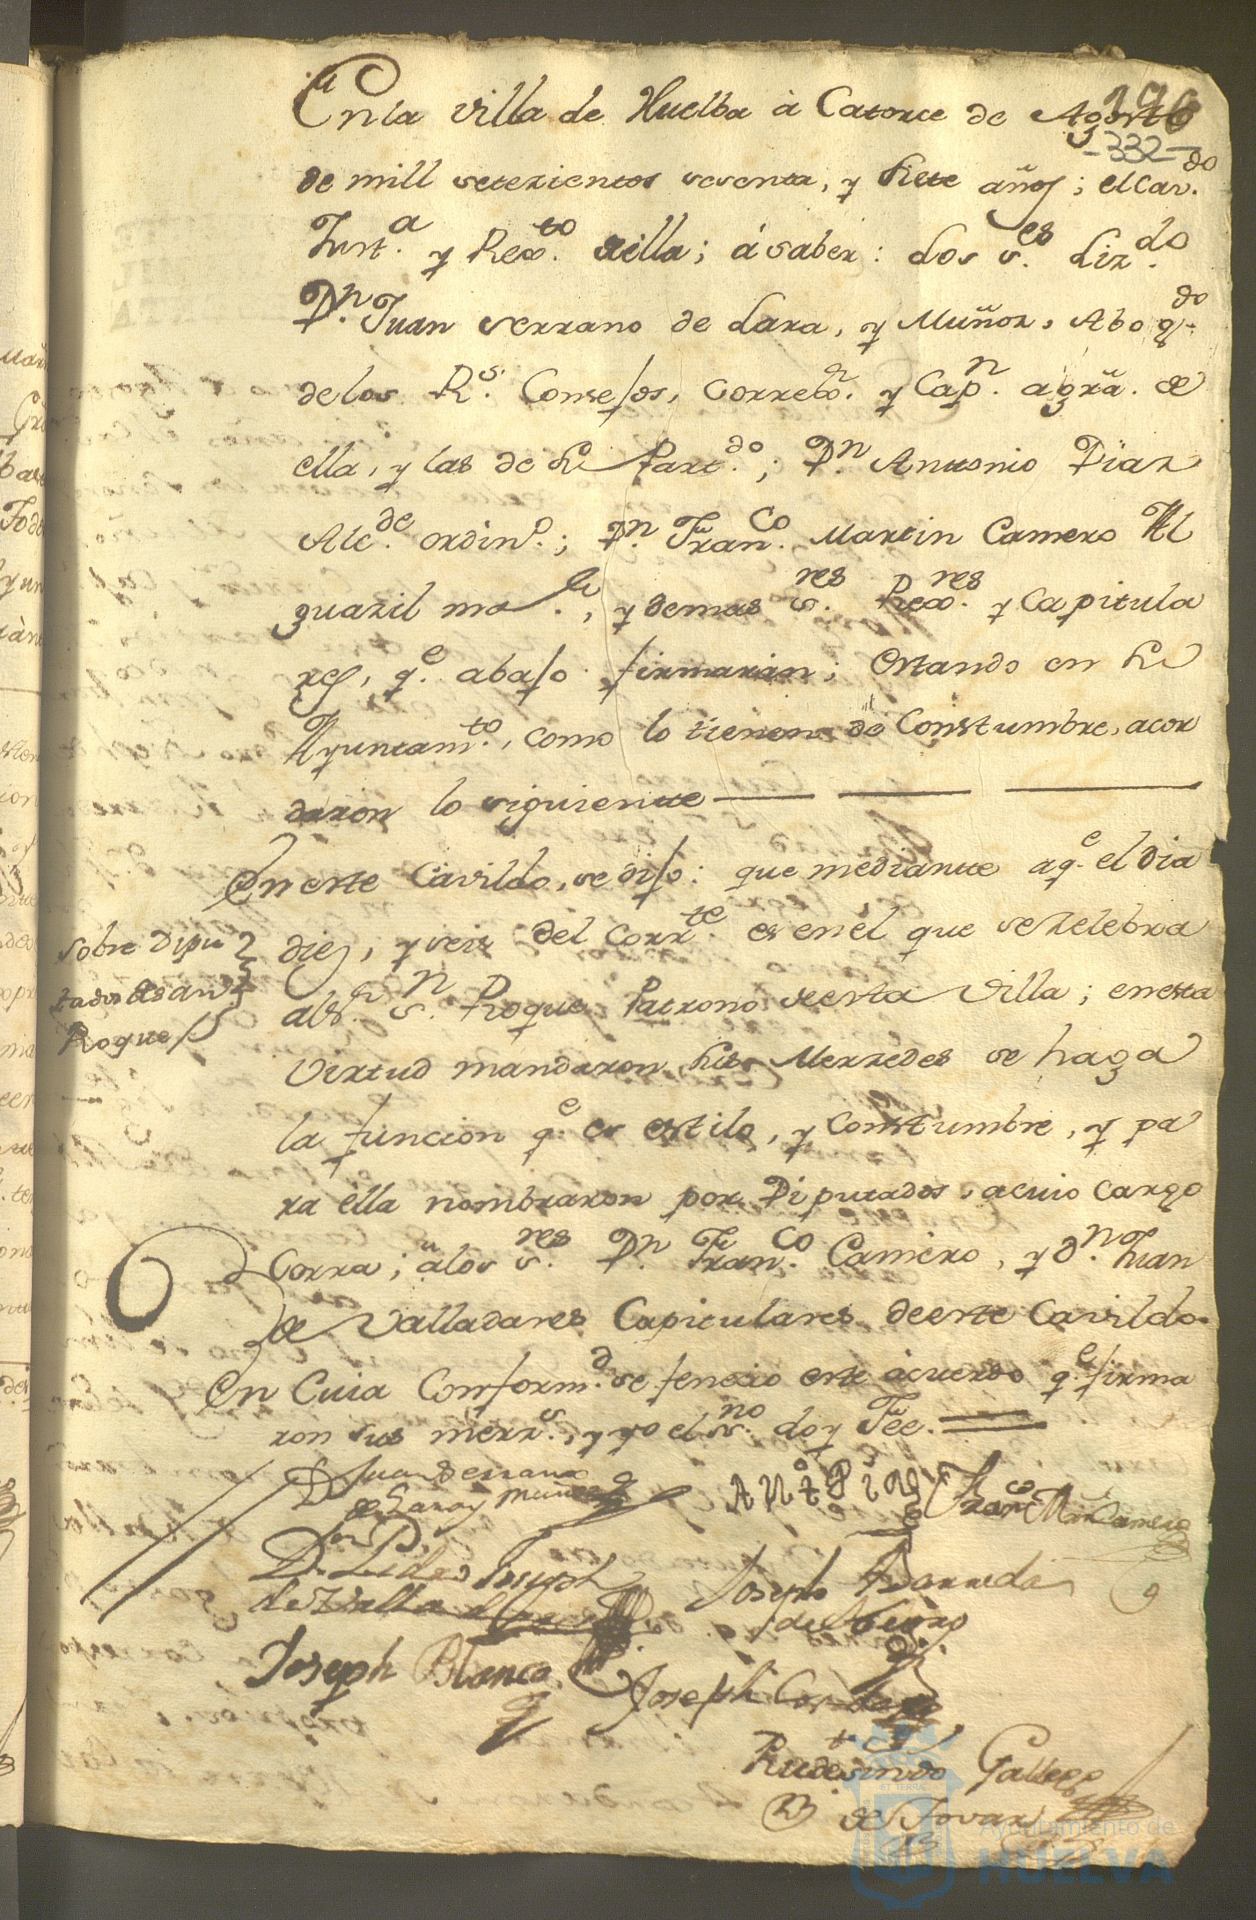 196
-332-
En la villa de Huelba à Catorce de Agosto
de mill setezientos sesenta, y siete años; el Cav.do
Just.a y Rex.to de ella; á saber: Los S.es Liz.do
D.n Juan Serrano de Lara, y Muñoz, Abog.do
de los R.s Consejos, Correg.r y Cap.n a grã. de
ella, y las de su Part.do; D.n Antonio Diaz
Alc.de ordin.o; D.n Fran.co Martin Camero Al
guazil ma.r, y demas S.res Rex.res y Capitula
res, q.e abajo firmarán; Estando en su
Ayuntam.to, como lo tienen de Constumbre, acor
daron lo siguiente
En este Cavildo, se dijo: que mediante a q.e el dia
Sobre Dipu
tados de San
Roque
diez, y seis del Corr.te es en él que se zelebra
al S.r S.n Roque Patrono de esta Villa; en esta
Virtud mandaron sus Merzedes se haga
la funcion q.e es estilo, y constumbre, y pa
ra ella nombraron por Diputados, a cuio cargo
Corra; a los S.res D.n Fran.co Camero, y D.n Juan
de Valladares Capitulares de este Cavildo.
En Cuia Conform.d se fenezio este acuerdo q.e firma
ron sus merz.s, y yo el S.no doy Fee.
D Juan Serrano
de Lara y Muñoz
Ant.o Diaz
Fran.co M.n Camero
D.n Pedro Joseph
Joseph Barreda
Joseph Blanco
Joseph Cordero
Rudesindo Gallego
de Tovar
Ayuntamiento de
HUELVA